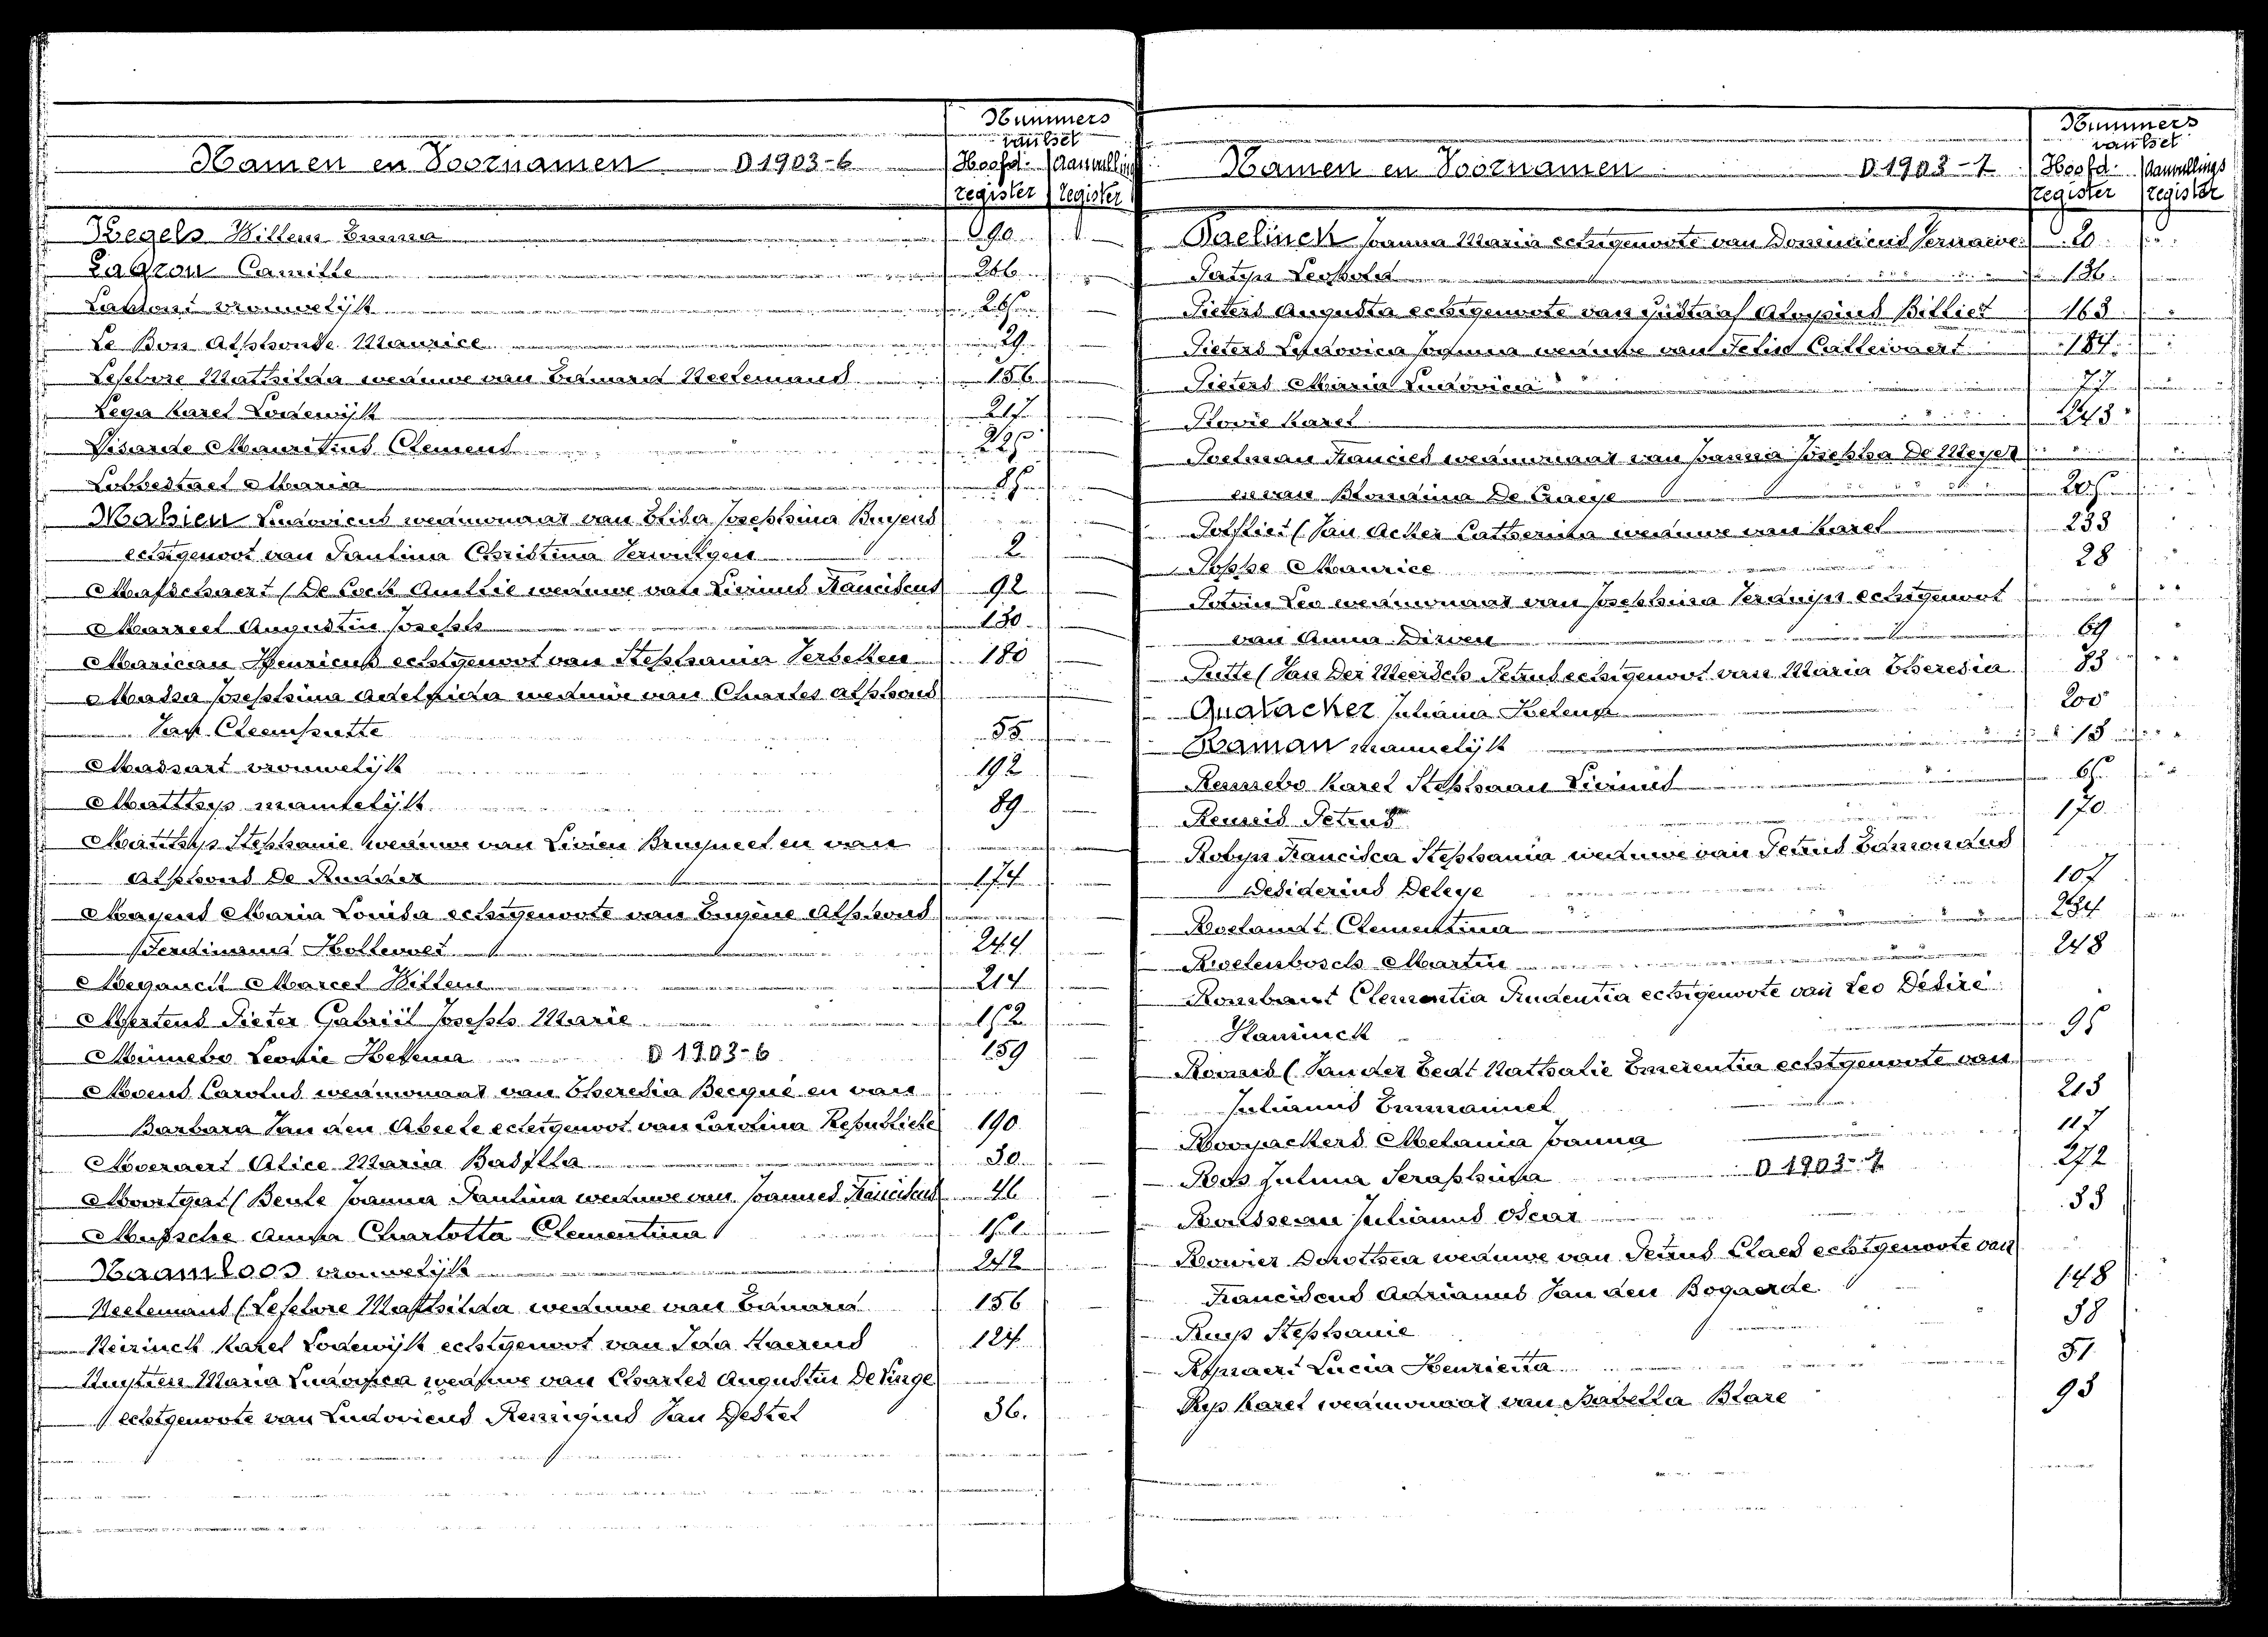 Namen en Voornamen D 1903-6
Nummers
van het
Hoofd- Aanvullings
register register
Kegels Willem 290
La Gron Camille 266
vrouwelijk
Le Bon Alphonse Maurice 29
Lefebvre Mathilda weduwe van Edmond Neelemans 156
Lega Karel Lodewijk 217
Lisarde Mauritius Clement 225
Lobbestael Maria
Mahieu Ludovicus weduwnaar van Elisa Josephina Buyens
echtgenoot van Paulina Christina 2
Masschaert (De Cock Amelie weduwe van Livinus Franciscus 92
Augustin Joseph 130
Henricus echtgenoot van Stephania Verbeken 180
Josephina Adelaida weduwe van Charles Alphons
Van Cleemputte 55
Massart vrouwelijk 192
Matthys mannelijk 89
Matthys Stephanie weduwe van Livien Bruyneel en van
Alphons De Ruycker 174
Mayens Maria Louisa echtgenoote van Eugène Alphons
Ferdinand Hollevoet 244
Meganck Marcel Willem 214
Mertens Pieter Gabriël Joseph Marie 152
Minnebo Leonie Helena D 1903-6 159
Moens Carolus weduwnaar van Theresia Becqué en van
Barbara Van den Abeele echtgenoot van Carolina 190
Moernaert Alice Maria 30
(Beule Joanna Paulina weduwe van Joannes Franciscus 46
Mussche Anna Charlotta Clementina 151
Naamloos vrouwelijk 242
Neelemans (Lefebvre Mathilda weduwe van Edmond 156
Neirinck Karel Lodewijk echtgenoot van Ida Haerens 124
Nuytten Maria Ludovica weduwe van Charles Augustin De Vinge
echtgenoote van Ludovicus Remigius Van Gestel 36.
Namen en Voornamen D 1903-7
Nummers
van het
Hoofd- Aanvullings
register register
Paelinck Joanna Maria echtgenoote van Dominicus 20
Leopold 136
Pieters Augusta echtgenoote van Gustaaf Aloysius Billiet 163
Pieters Ludovica Joanna weduwe van Felix Callewaert 184
Pieters Maria Ludovica 77
Plovie Karel 243
Poelman Francies weduwnaar van Joanna Josepha De Meyer
en van Blondina De Craeye 205
Potvliet (Van Acker Catherina weduwe van Karel 233
Poppe Maurice 28
Potvin Leo weduwnaar van Josephina echtgenoot
van Anna Dirven 64
Putte (Van Der Meersch Petrus echtgenoot van Maria Theresia 83
Quatacker Juliana 200
Raman mannelijk 15
Remsebo Karel Stephaan Livinus 65
Petrus 170
Robyn Francisca Stephania weduwe van Petrus Edmondus
Desiderius Deleye 107
Roelandt Clementina 234
Roelenbosch Martin 248
Rombaut Clementia Prudentia echtgenoote van Leo Désiré
Haninck 95
(Van der Eecht Nathalie Emerentia echtgenoote van
Julianus Emmanuel 213
Rooryackers Melania Joanna 117
Ros Julma Seraphina D 1903-7 272
Rousseau Julianus Oscar 33
Rowier Dorothea weduwe van Petrus Claes echtgenoote van
Franciscus Adrianus Van den Bogaerde 148
Ruys Stephanie 38
Ryraert Lucia Henrietta 51
Rys Karel weduwnaar van Isabella Blare 93